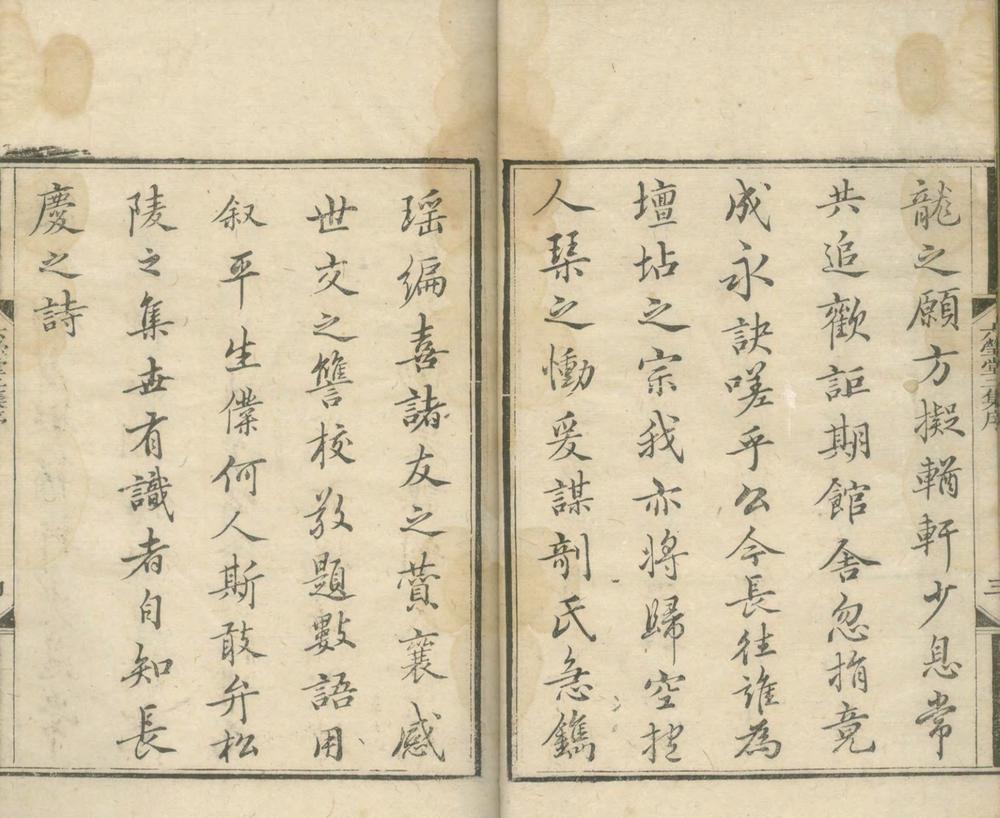 龍之願方擬輶軒少息常
共追歡詎期館舍忽捐竟
成永訣嗟乎公今長往誰為
壇坫之宗我亦將歸空抱
人琴之慟爰謀剞氏急鐫
瑶編喜諸友之贊襄感
世交之讐校敬題數語用
叙平生僕何人斯敢弁松
陵之集世有識者自知長
慶之詩
六瑩堂二集序
三